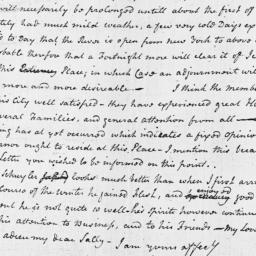 will necessarily be prolonged untill about the first of
tely had much mild weather, a few very cold Days ex
to Day that the River is open from New York to above
bable therefore that a Fortnight more will clear it of Ice
this Extreme Place; in which Case an adjournment wil
more and more desireable — I think the membe
his city well satisfied — they have experienced great H
veral Families, and general attention from all —
ing has as yet occurred which indicates a fixed opinio
nor ought to reside at this Place — I mention this beca
letter you wished to be informed on this point. —
Schuyler looks much better than when I first arr
Course of the winter he gained Flesh, and enjoyed good
but he is not quite so well — his Spirits however continue
his attention to Business, and to his Friends — My Lov
adieu my dear Sally — I am yours affect